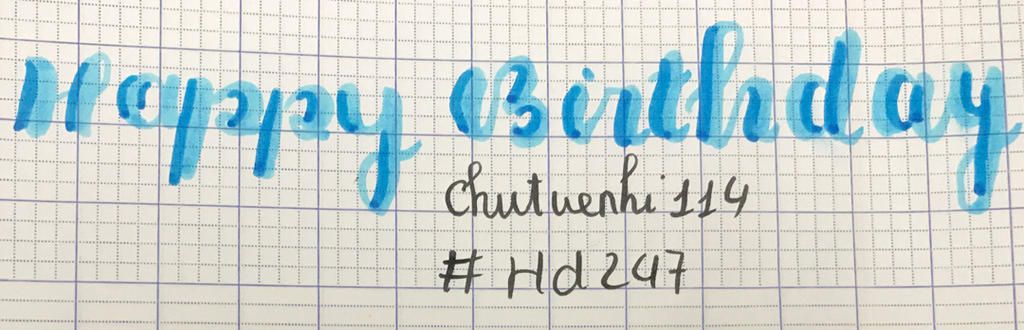 Happy Birthday
Chutuenhi 114
# Hd247